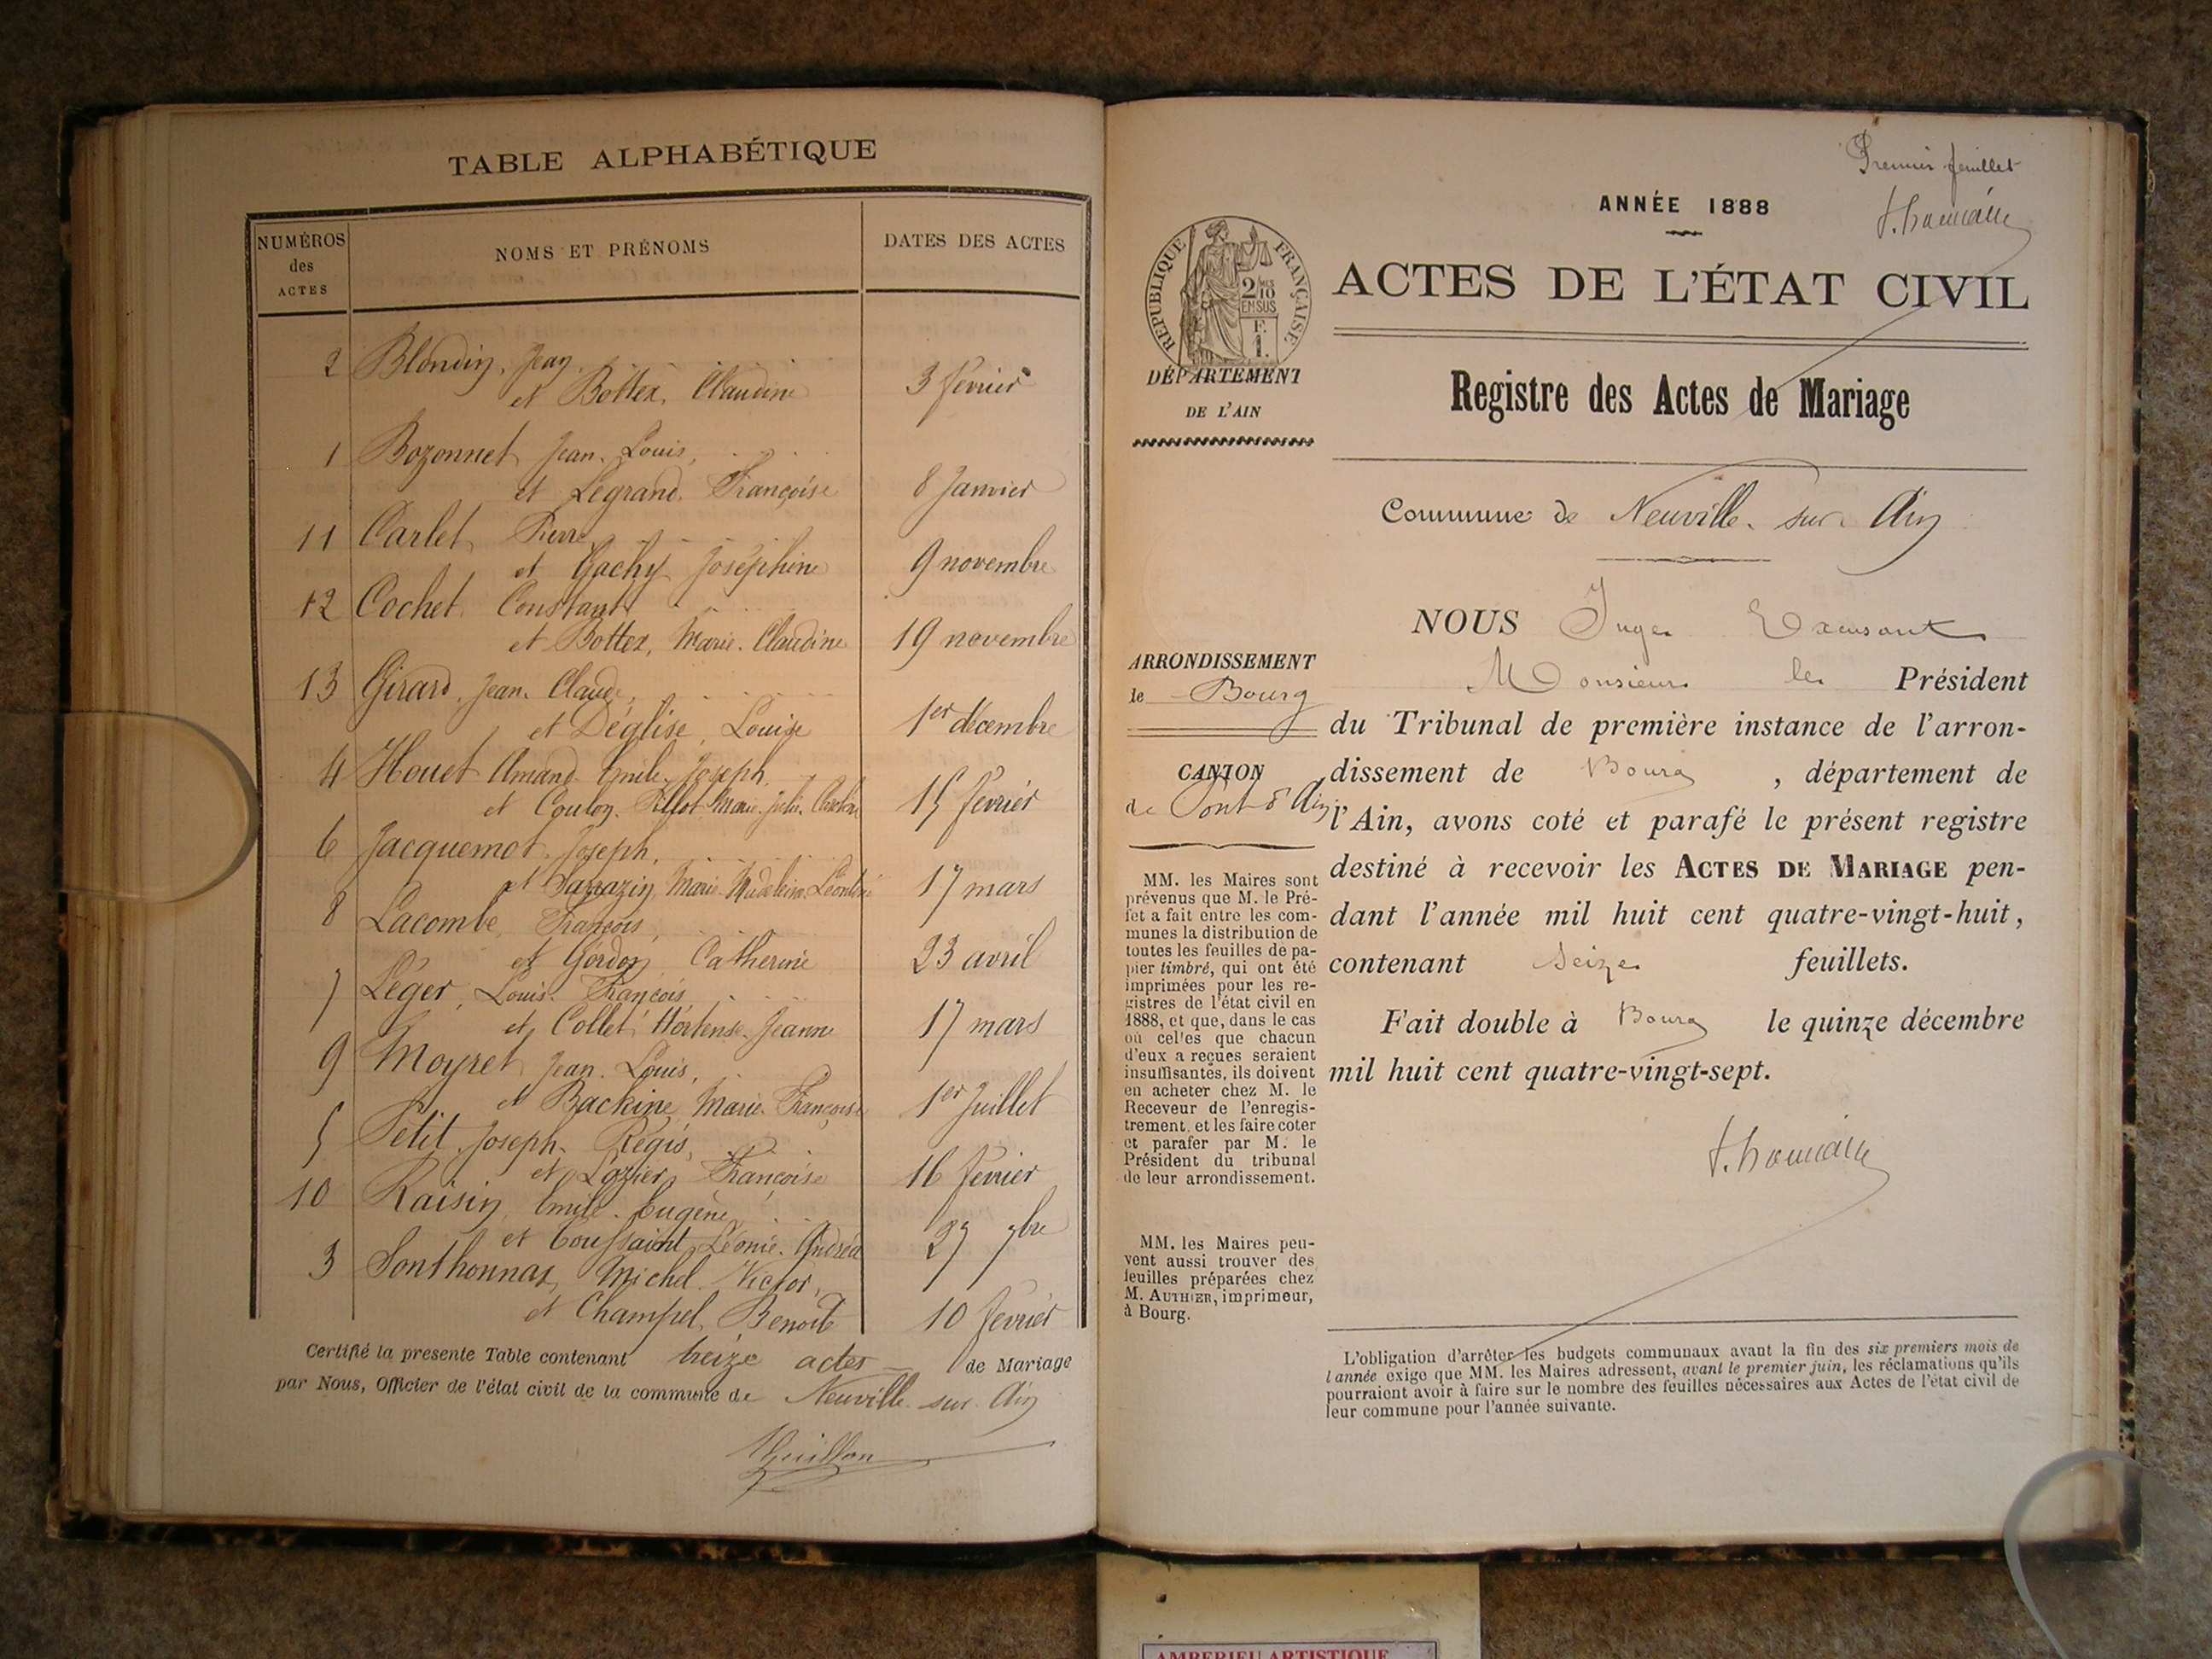 TABLE ALPHABÉTIQUE
NUMÉROS
des
ACTES
NOMS ET PRÉNOMS
DATES DES ACTES
2 Blondin, Jean,
et Bottex, Claudine 3 février
1 Bozonnet, Jean-Louis,
et Legrand, Françoise 8 Janvier
11 Carlet, Pierre,
et Gachy, Joséphine 9 novembre
12 Cochet, Constant,
et Bottex, Marie-Claudine 19 novembre
13 Girard, Jean-Claude,
et Déglise, Louise 1er décembre
4 Houet Amand-Emile-Joseph,
et Coulon-Pillot Marie-Julie 15 février
6 Jacquemot, Joseph,
et Sarrazin, Marie-Madeleine-Léontine 17 mars
8 Lacombe, François,
et Gordon, Catherine 23 avril
7 Léger, Louis-François,
et Collet, Hortense-Jeanne 17 mars
9 Moyret, Jean-Louis,
et Backine, Marie-Françoise 1er Juillet
5 Petit, Joseph-Régis,
et Lozier, Françoise 16 février
10 Raisin, Emile-Eugène,
et Toussaint, Léonie-Andréa 27 7bre
3 Sonthonnax, Michel-Victor,
et Champel, Benoite 10 février
Certifié la presente Table contenant treize actes de Mariage
par Nous, Officier de l'état civil de la commune de Neuville-sur-Ain
Premier feuillet
ANNÉE 1888
RÉPUBLIQUE FRANÇAISE
2 10
EN SUS
F.
1.
ACTES DE L'ÉTAT CIVIL
DÉPARTEMENT
DE L'AIN
Registre des Actes de Mariage
Commune de Neuville-sur-Ain
NOUS Juge Excusant
Monsieur le Président
du Tribunal de première instance de l'arron-
dissement de Bourg, département de
l'Ain, avons coté et parafé le présent registre
destiné à recevoir les ACTES DE MARIAGE pen-
dant l'année mil huit cent quatre-vingt-huit,
contenant Seize feuillets.
Fait double à Bourg le quinze décembre
mil huit cent quatre-vingt-sept.
ARRONDISSEMENT
de Bourg
CANTON
de Pont-d'Ain
MM. les Maires sont
prévenus que M. le Pré-
fet a fait entre les com-
munes la distribution de
toutes les feuilles de pa-
pier timbré, qui ont été
imprimées pour les re-
gistres de l'état civil en
1888, et que, dans le cas
où celles que chacun
d'eux a reçues seraient
insuffisantes, ils doivent
en acheter chez M. le
Receveur de l'enregis-
trement, et les faire coter
et parafer par M. le
Président du tribunal
de leur arrondissement.
MM. les Maires peu-
vent aussi trouver des
feuilles préparées chez
M. AUTHIER, imprimeur,
à Bourg.
L'obligation d'arrêter les budgets communaux avant la fin des six premiers mois de
l'année exige que MM. les Maires adressent, avant le premier juin, les réclamations qu'ils
pourraient avoir à faire sur le nombre des feuilles nécessaires aux Actes de l'état civil de
leur commune pour l'année suivante.
AMBERIEU ARTISTIQUE